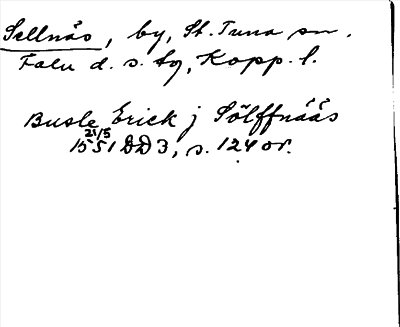 Sellnäs, by, St. Tuna sn.
Falu d. s. tg, Kopp. l.
Busle Erick j Sölffnääs
21/5
1551 DD 3, s. 124 or.